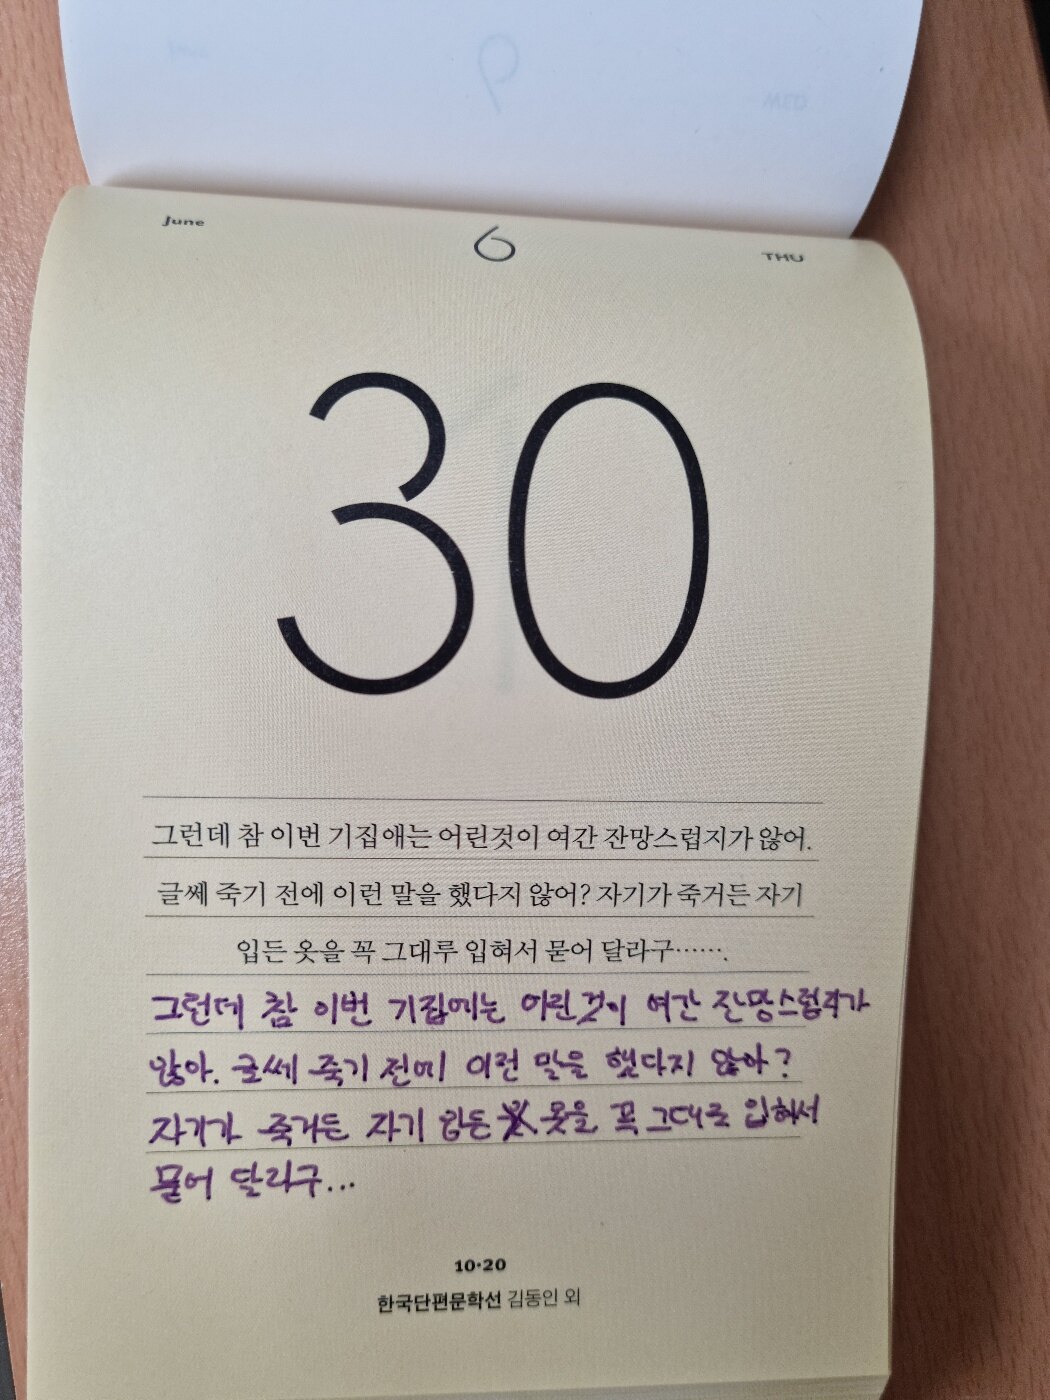 June 6 THU
30
그런데 참 이번 기집애는 어린것이 여간 잔망스럽지가 않어.
글쎄 죽기 전에 이런 말을 했다지 않어? 자기가 죽거든 자기
입든 옷을 꼭 그대루 입혀서 묻어 달라구…….
그런데 참 이번 기집애는 어린것이 여간 잔망스럽지가
않아. 글쎄 죽기 전에 이런 말을 했다지 않아?
자기가 죽거든 자기 입든 옷을 꼭 그대로 입혀서
묻어 달라구...
10·20
한국단편문학선 김동인 외